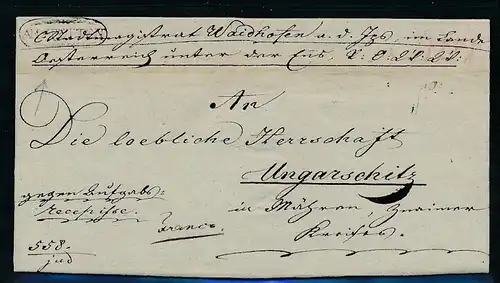 Stadtmagistrat Waidhofen a. d. Ips, im Lande
Oesterreich unter der Ens, V. O. W. W.
An
Die loebliche Herrschaft
Ungarschitz
in Mähren, Znaimer
Kreises.
gegen Aufgabs-
Recepisse.
Franco.
558.
jud